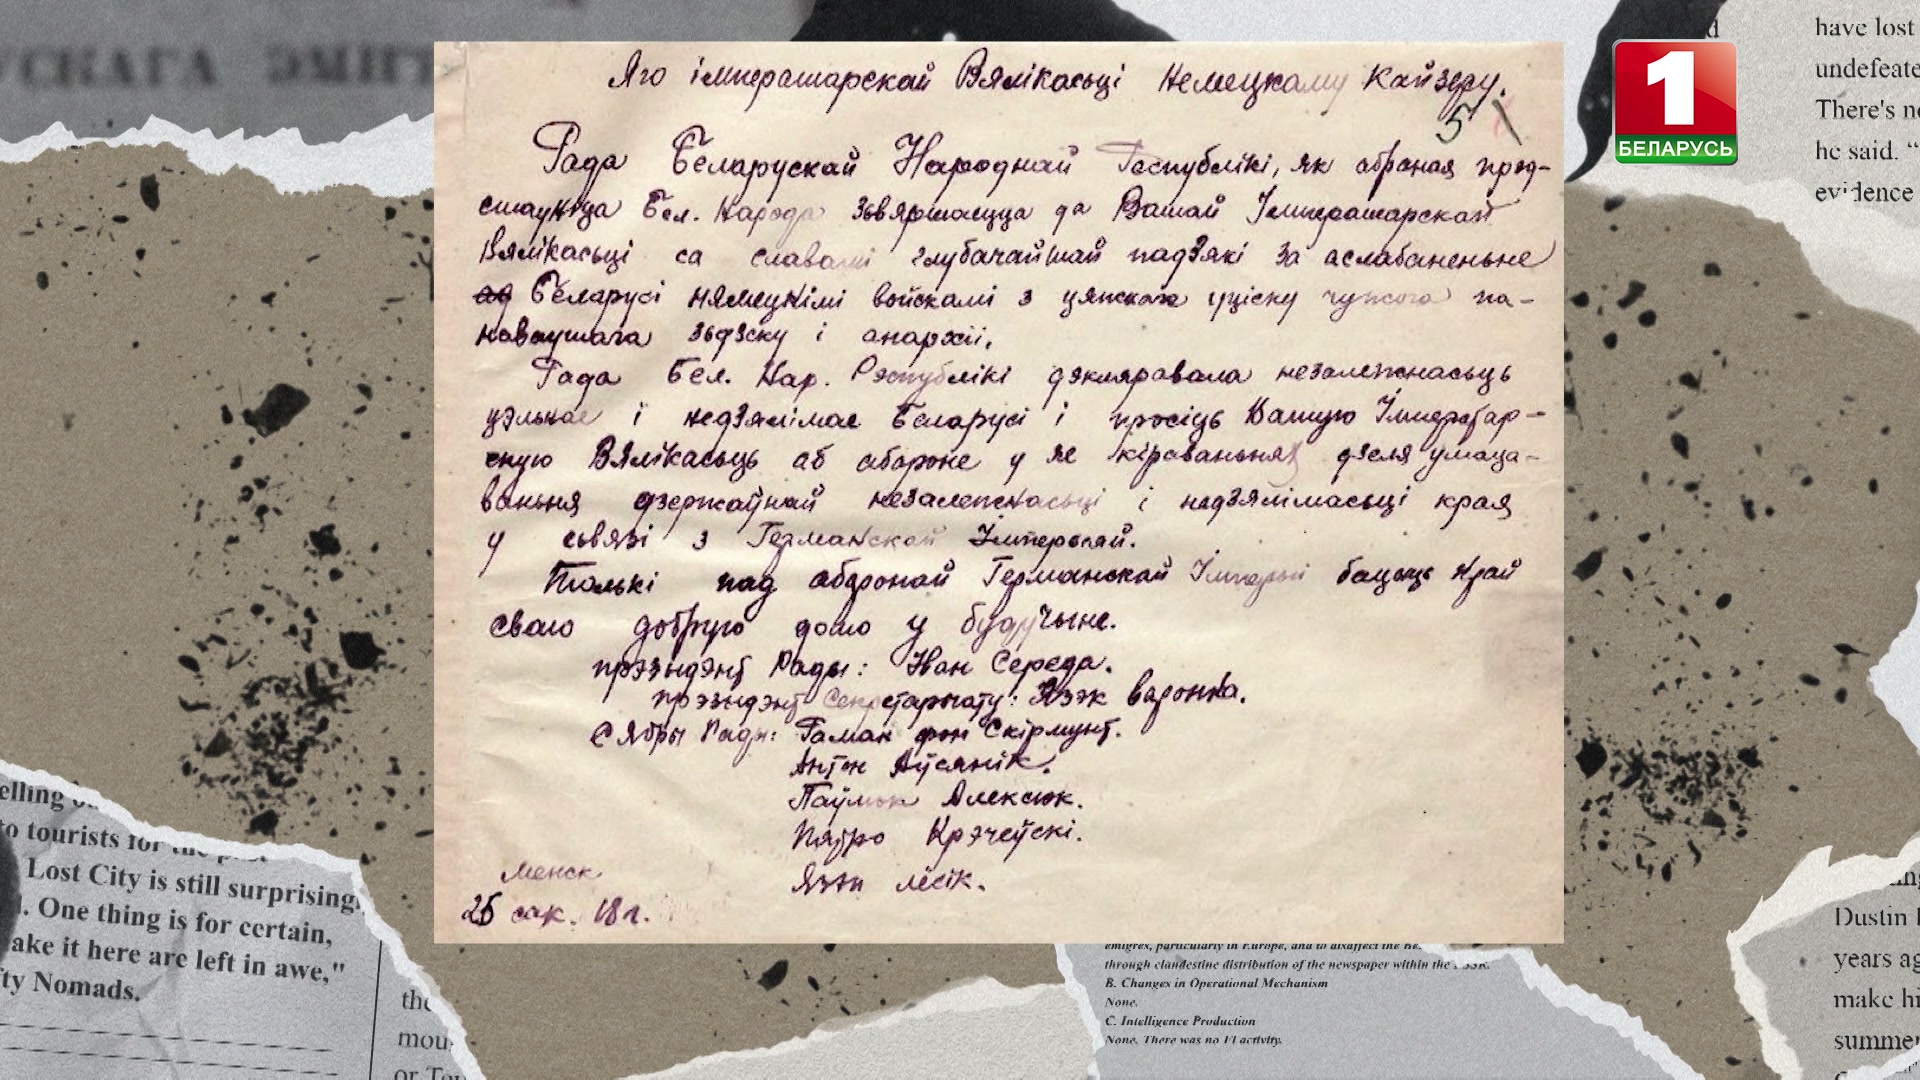 УСКАГА ЭМІГ
1
БЕЛАРУСЬ
have lost
undefeate
There's no
he said. “
evidence
Яго імператарскай Вялікасьці Немецкаму Кайзеру.
5
Рада Беларускай Народнай Рэспублікі, як абраная прэд-
стаўніца Бел. Народа зьвяртаецца да Вашай Імператарскай
Вялікасьці са славамі глубачайшай падзякі за аслабаненьне
ад Беларусі нямецкімі войскамі з цяжкага уціску чужога па-
новаушага зьдзеку і анархіі.
Рада Бел. Нар. Рэспублікі дэкляравала незалежнасьць
цэльнае і недзялімае Беларусі і просіць Вашую Імператар-
скую Вялікасьць аб абароне у яе кіраваньнях дзеля умаца-
ваньня дзержаўнай незалежнасьці і недзялімасьці края
у сьвязі з Германскай Імперыяй.
Толькі пад абаронай Германскай Імперыі бачыць Край
сваю добрую долю у будучыне.
прэзыдэнт Рады: Іван Середа.
прэзыдэнт Секретарыату: Язэк варонка.
Сябры Рады: Раман фон Скірмунт.
Антон Аўсянік.
Паўлюк Алексюк.
Пятро Крэчеўскі.
Язэп лёсік.
Менск
25 сак. 18 г.
elling
to tourists for the
Lost City is still surprising,
. One thing is for certain,
ake it here are left in awe,"
fty Nomads.
the
mou
or To
emigres, particularly in Europe, and to disaffect the
through clandestine distribution of the newspaper within the
B. Changes in Operational Mechanism
None.
C. Intelligence Production
None. There was no FI activity.
Dustin
years ag
make hi
summer